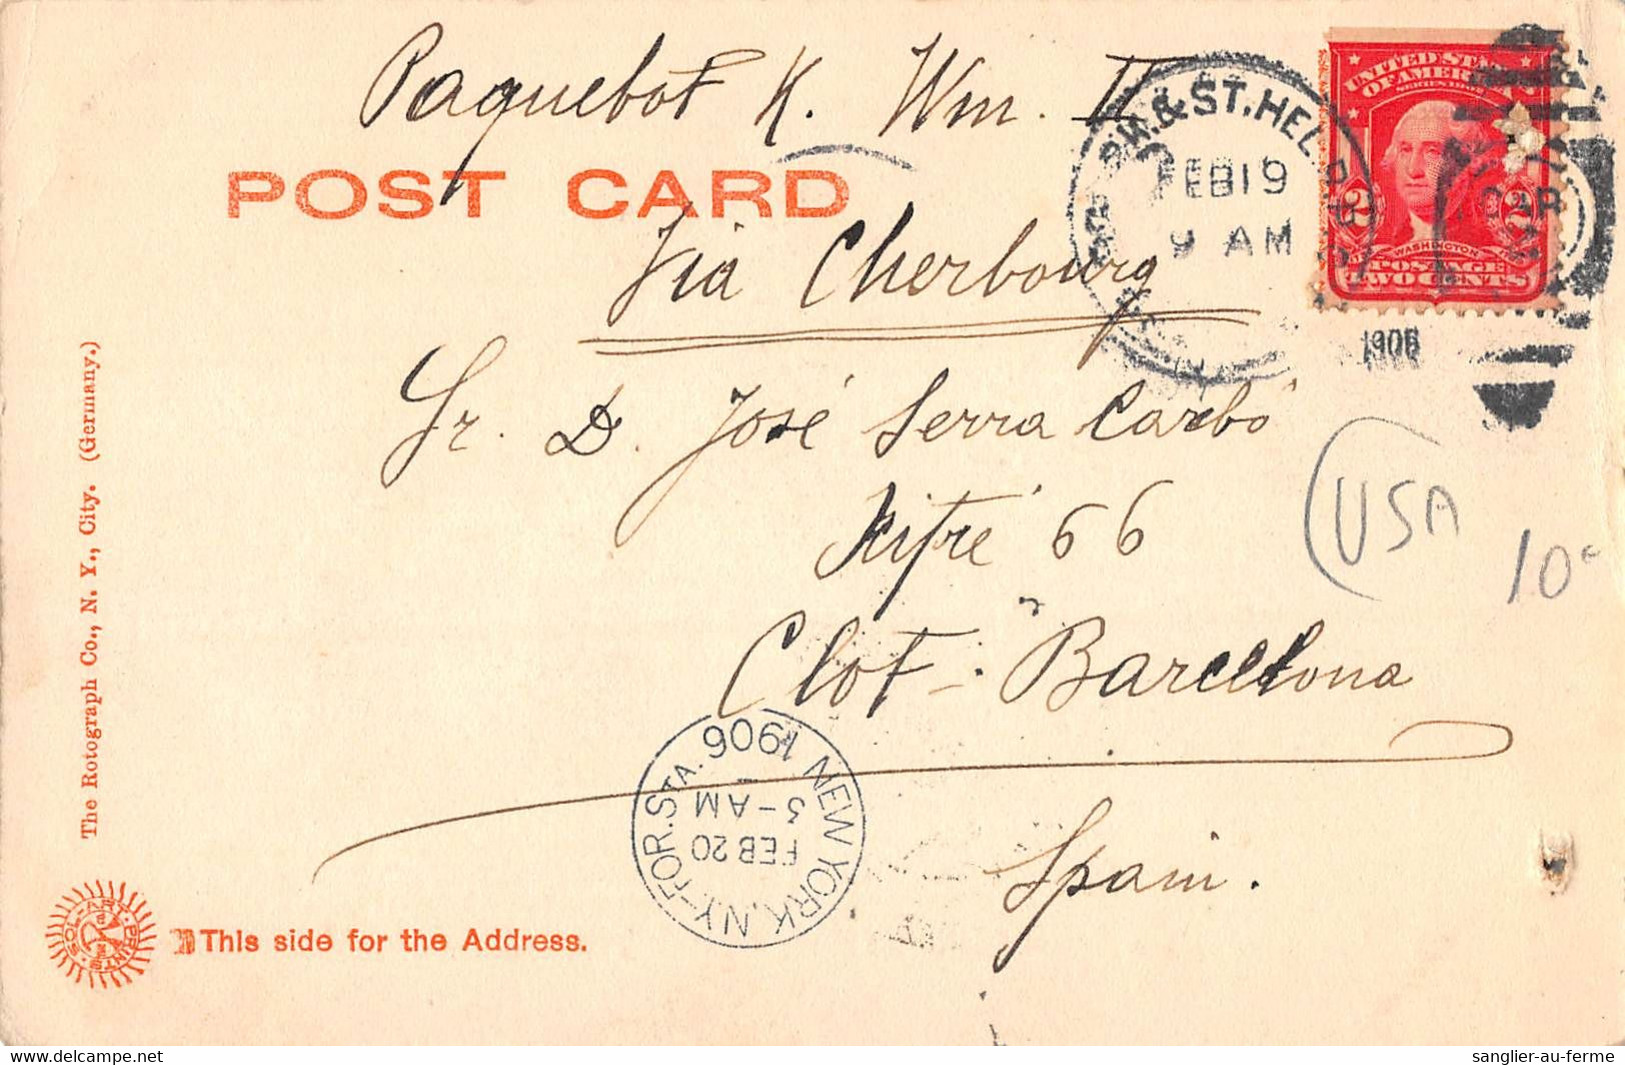 Paquebot K. Wm. II
POST CARD
Via Cherbourg
Sr. D. José Serra Carbó
Xifré 66
Clot - Barcelona
Spain.
& ST. HEL.
FEB 19
9 AM
1906
UNITED STATES
OF AMERICA
SERIES 1902
2 2
WASHINGTON
POSTAGE
TWO CENTS
USA
10€
NEW YORK, N.Y.-FOR. STA. 1906
FEB 20
3-AM
The Rotograph Co., N. Y., City. (Germany.)
SOL-ART PRINTS
This side for the Address.
www.delcampe.net
sanglier-au-ferme